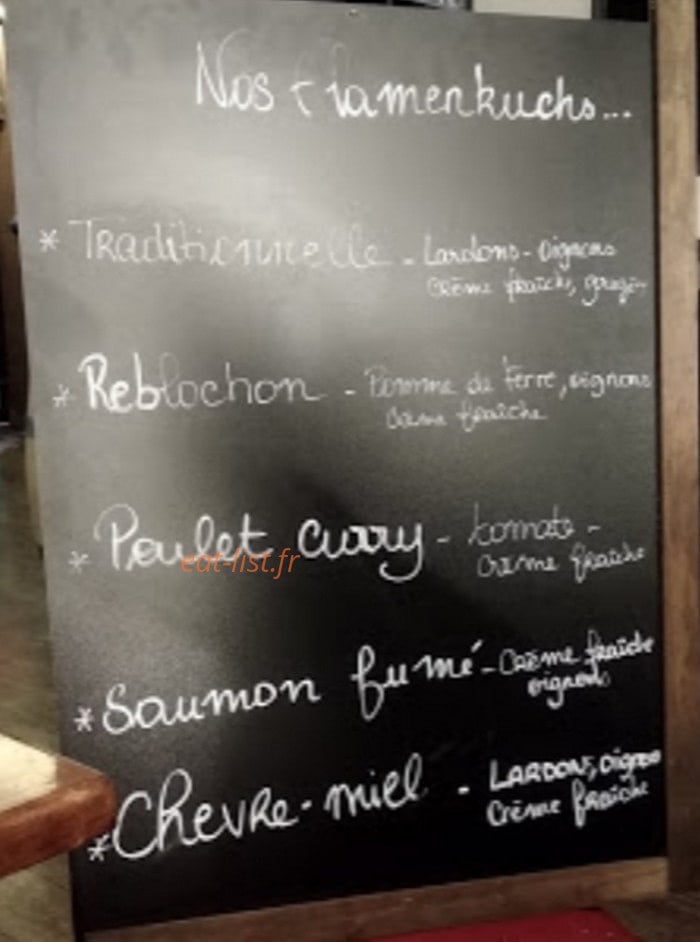 Nos flamenkuchs...
* Traditionnelle - Lardons - oignons
crème fraîche,
* Reblochon - Pomme de terre, oignons
crème fraîche
* Poulet curry - tomate -
crème fraîche
eat-list.fr
* Saumon fumé - Crème fraîche
oignons
* Chevre-miel - LARDONS, oignon
crème fraîche